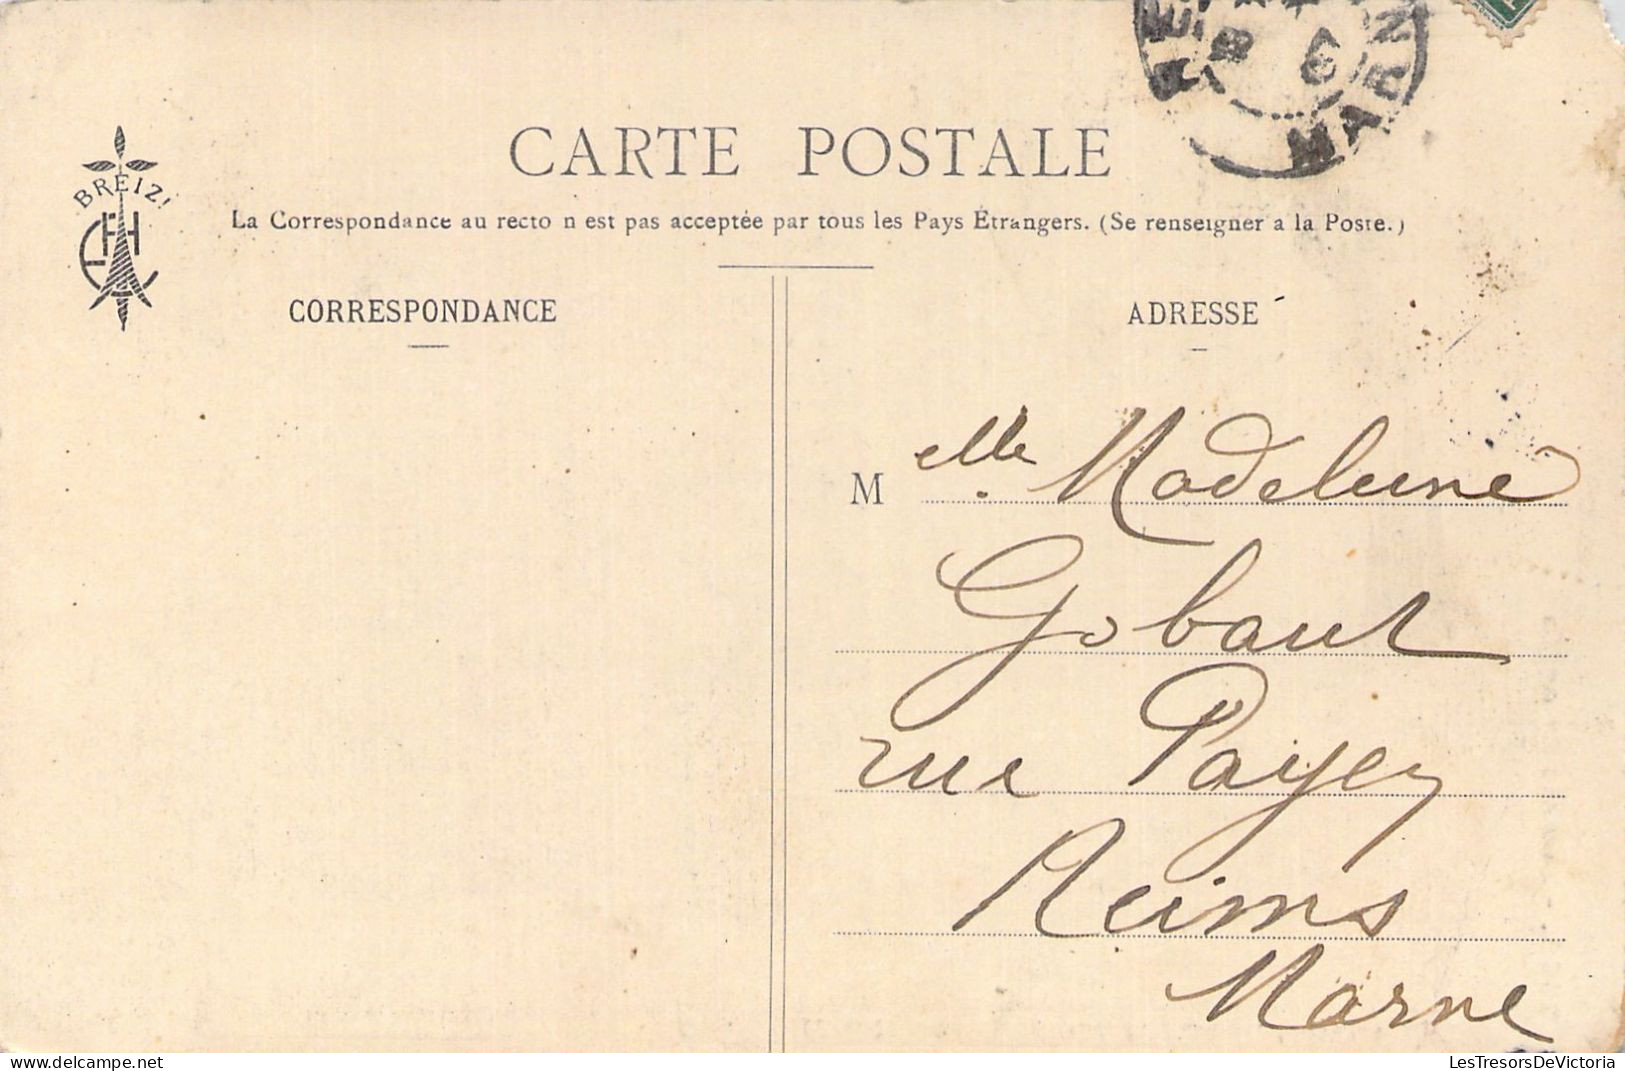 CARTE POSTALE
BREIZ!
La Correspondance au recto n est pas acceptée par tous les Pays Étrangers. (Se renseigner a la Poste.)
CORRESPONDANCE
ADRESSE
M elle. Madeleine
Gobaut
rue Payer
Reims
Marne
MARN
LesTresorsDeVictoria